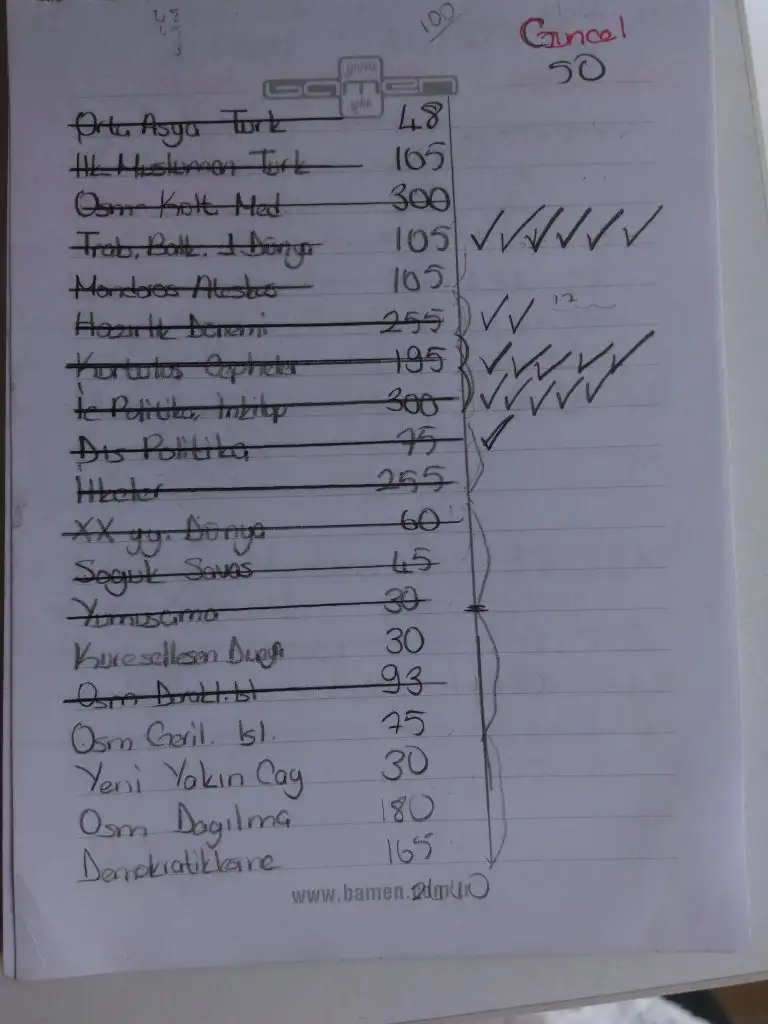 48
100
Güncel
50
Orta Asya Türk 48
İlk Müslüman Türk 105
Osm Kült Med 300
Trab, Balk, 1.Dünya 105
Mondoros Ateşkes 105
Hazırlık Dönemi 255
17
Kurtuluş Cepheler 195
İç Politika, İnkılap 300
Dış Politika 75
İlkeler 255
XX yy. Dünya 60
Soğuk Savaş 45
Yumuşama 30
Küreselleşen Dünya 30
Osm 93
Osm Geril. Isl. 75
Yeni Yakın Çağ 30
Osm Dağılma 180
Demokratikleşme 165
www.bamen.